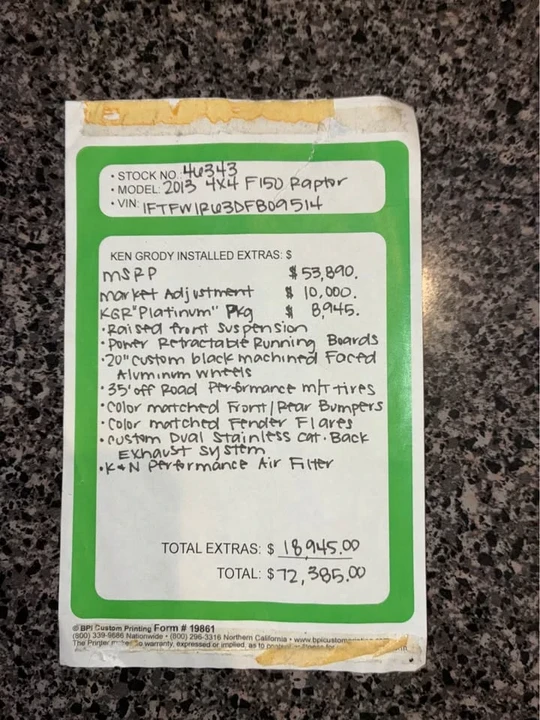 • STOCK NO. 46343
• MODEL: 2013 4X4 F150 Raptor
• VIN: 1FTFW1R63DFB09514
KEN GRODY INSTALLED EXTRAS: $
MSRP $53,890.
Market Adjustment $ 10,000.
KGR "Platinum" Pkg $ 8,945.
• Raised front Suspension
• Power Retractable Running Boards
• 20" custom black machined Faced
Aluminum wheels
• 35' off Road Performance m/T tires
• Color matched Front/Rear Bumpers
• Color matched Fender Flares
• Custom Dual Stainless Cat-Back
Exhaust System
• K&N Performance Air Filter
TOTAL EXTRAS: $ 18,945.00
TOTAL: $ 72,385.00
© BPI Custom Printing Form # 19861
(800) 339-9686 Nationwide • (800) 296-3316 Northern California • www.bpicustom
The Printer makes no warranty, expressed or implied, as to